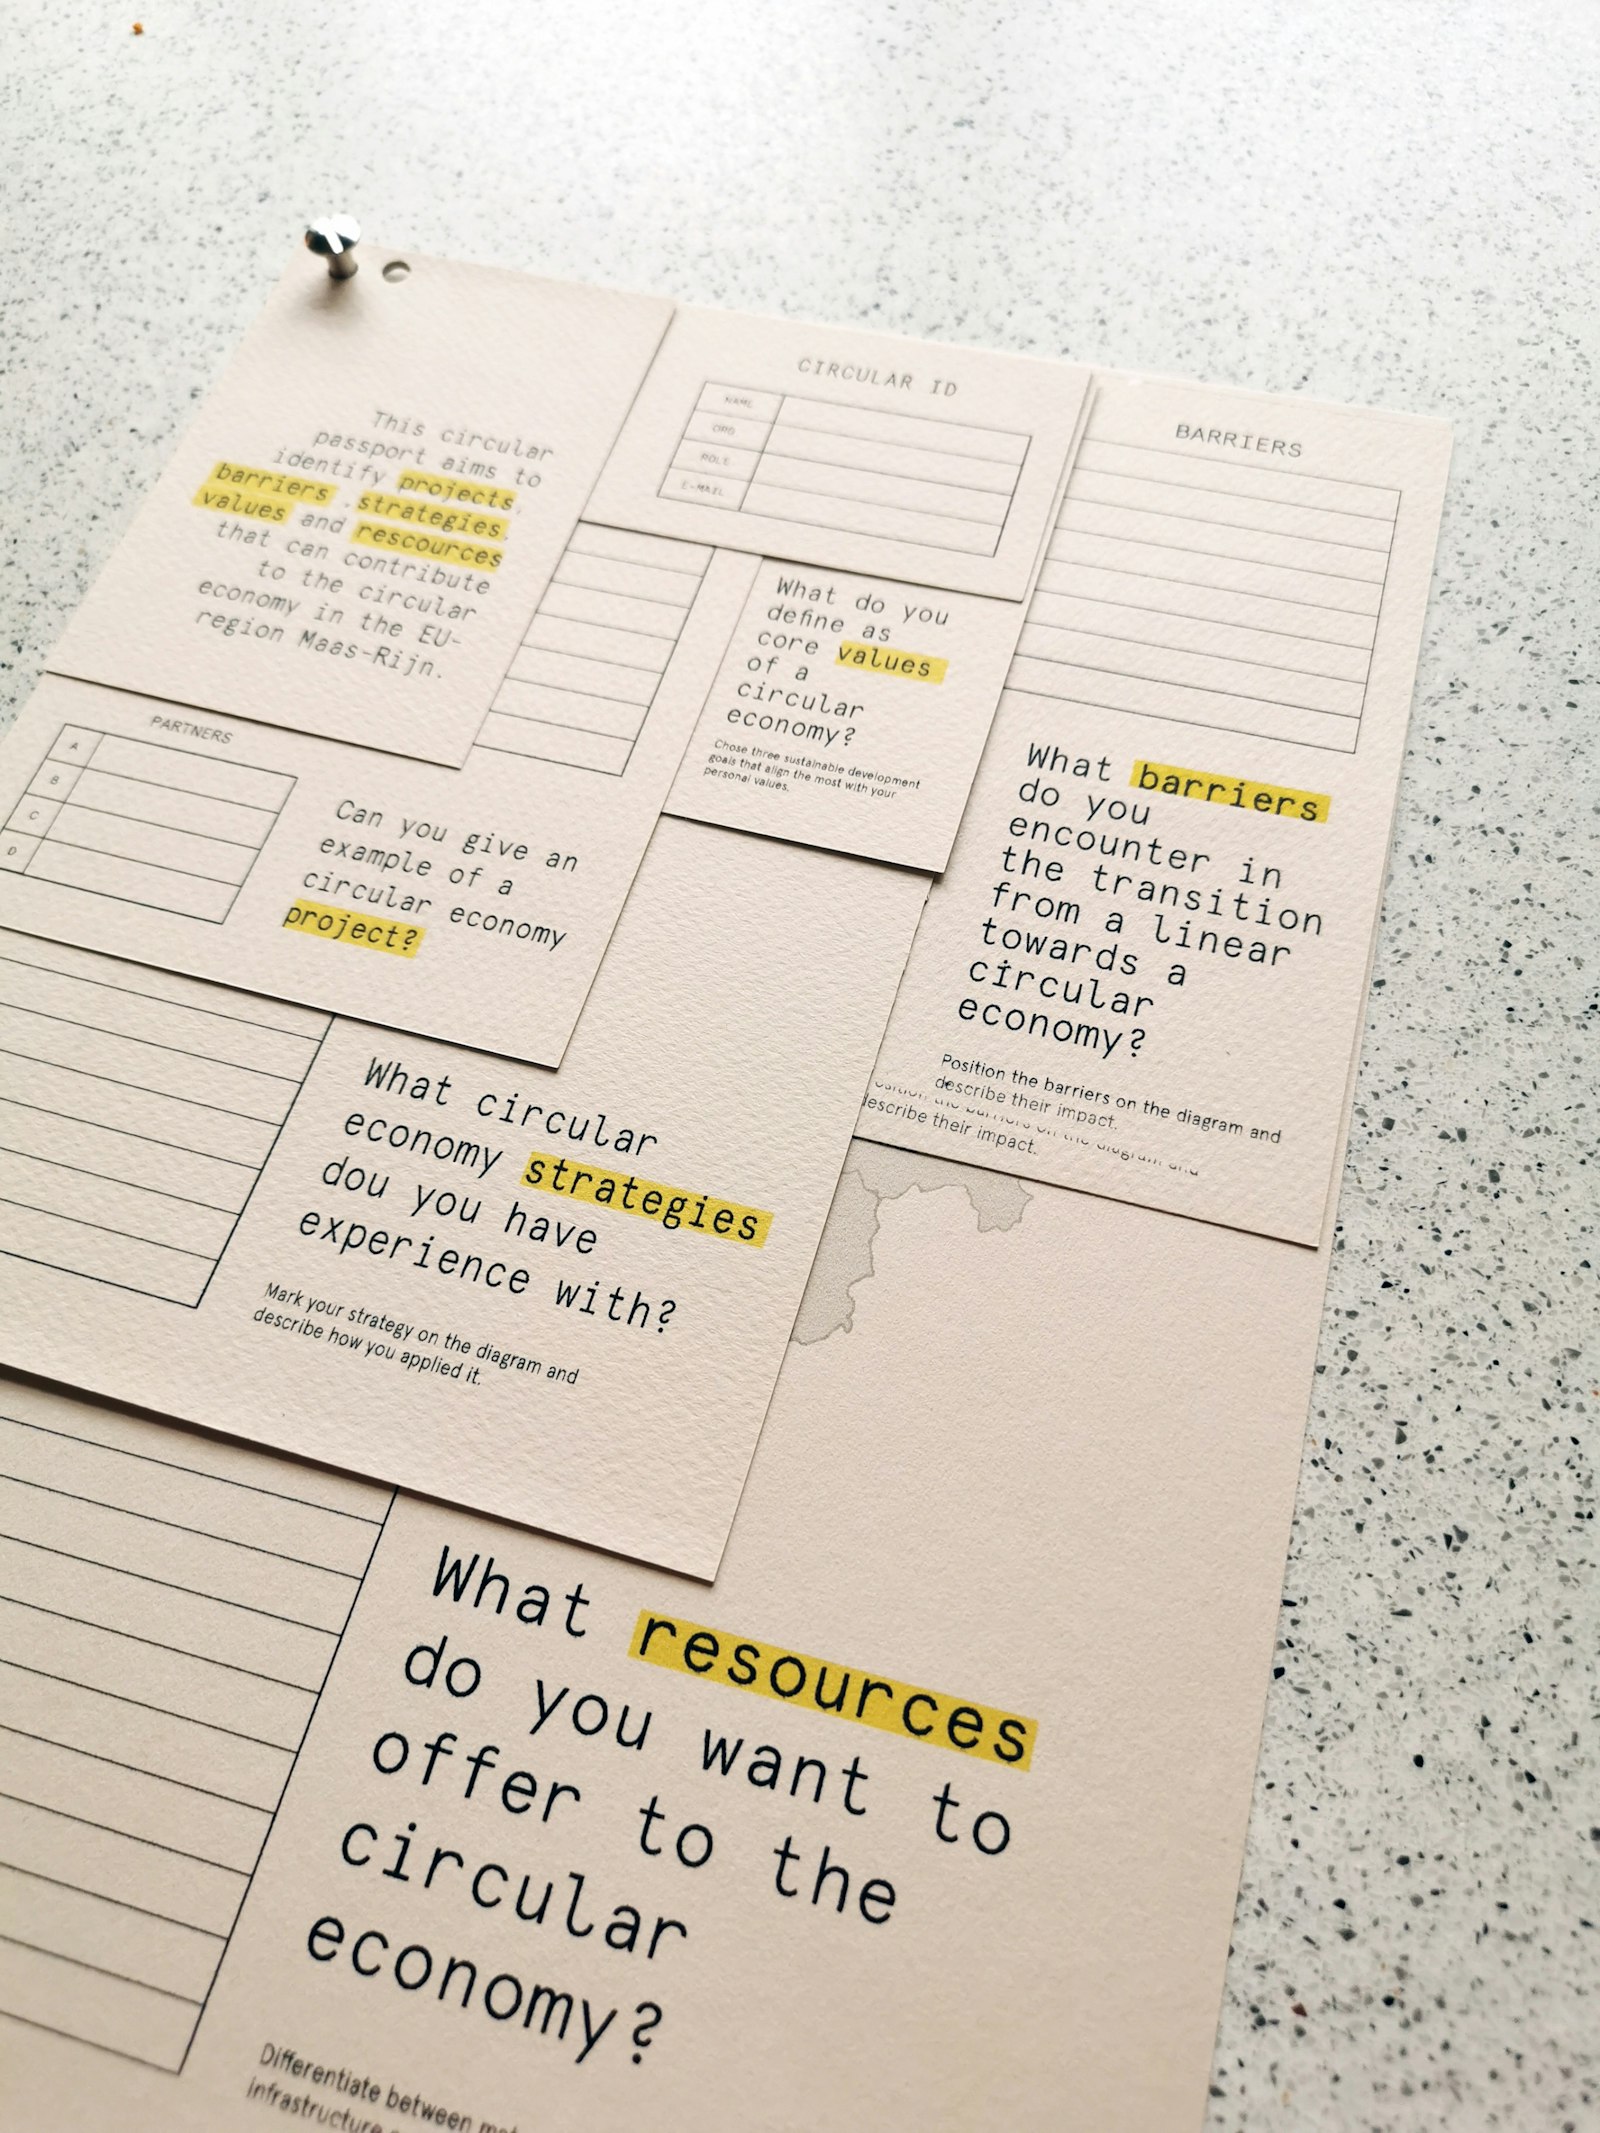 This circular
passport aims to
identify projects,
barriers, strategies,
values and rescources
that can contribute
to the circular
economy in the EU-
region Maas-Rijn.
CIRCULAR ID
NAME
ORG
ROLE
E-MAIL
What do you
define as
core values
of a
circular
economy?
Chose three sustainable development
goals that align the most with your
personal values.
BARRIERS
What barriers
do you
encounter in
the transition
from a linear
towards a
circular
economy?
Position the barriers on the diagram and
describe their impact.
describe their impact.
PARTNERS
A
B
C
D
Can you give an
example of a
circular economy
project?
What circular
economy strategies
dou you have
experience with?
Mark your strategy on the diagram and
describe how you applied it.
What resources
do you want to
offer to the
circular
economy?
Differentiate between
infrastructure